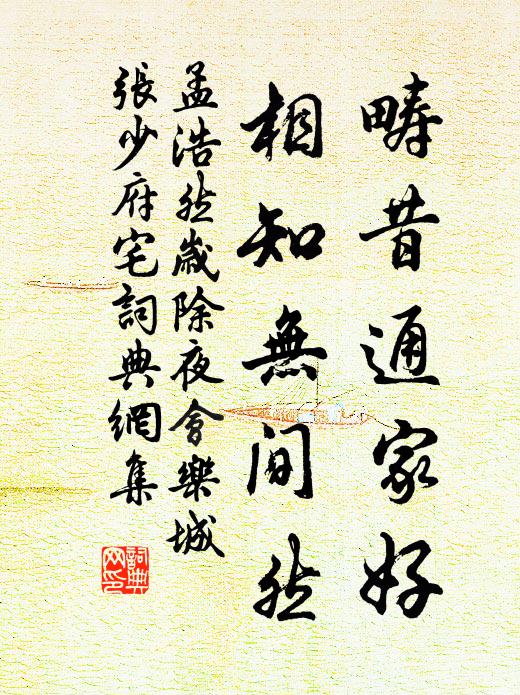 疇昔通家好
相知無間然
孟浩然歲除夜會樂城
張少府宅詞典網集
詞典
网印